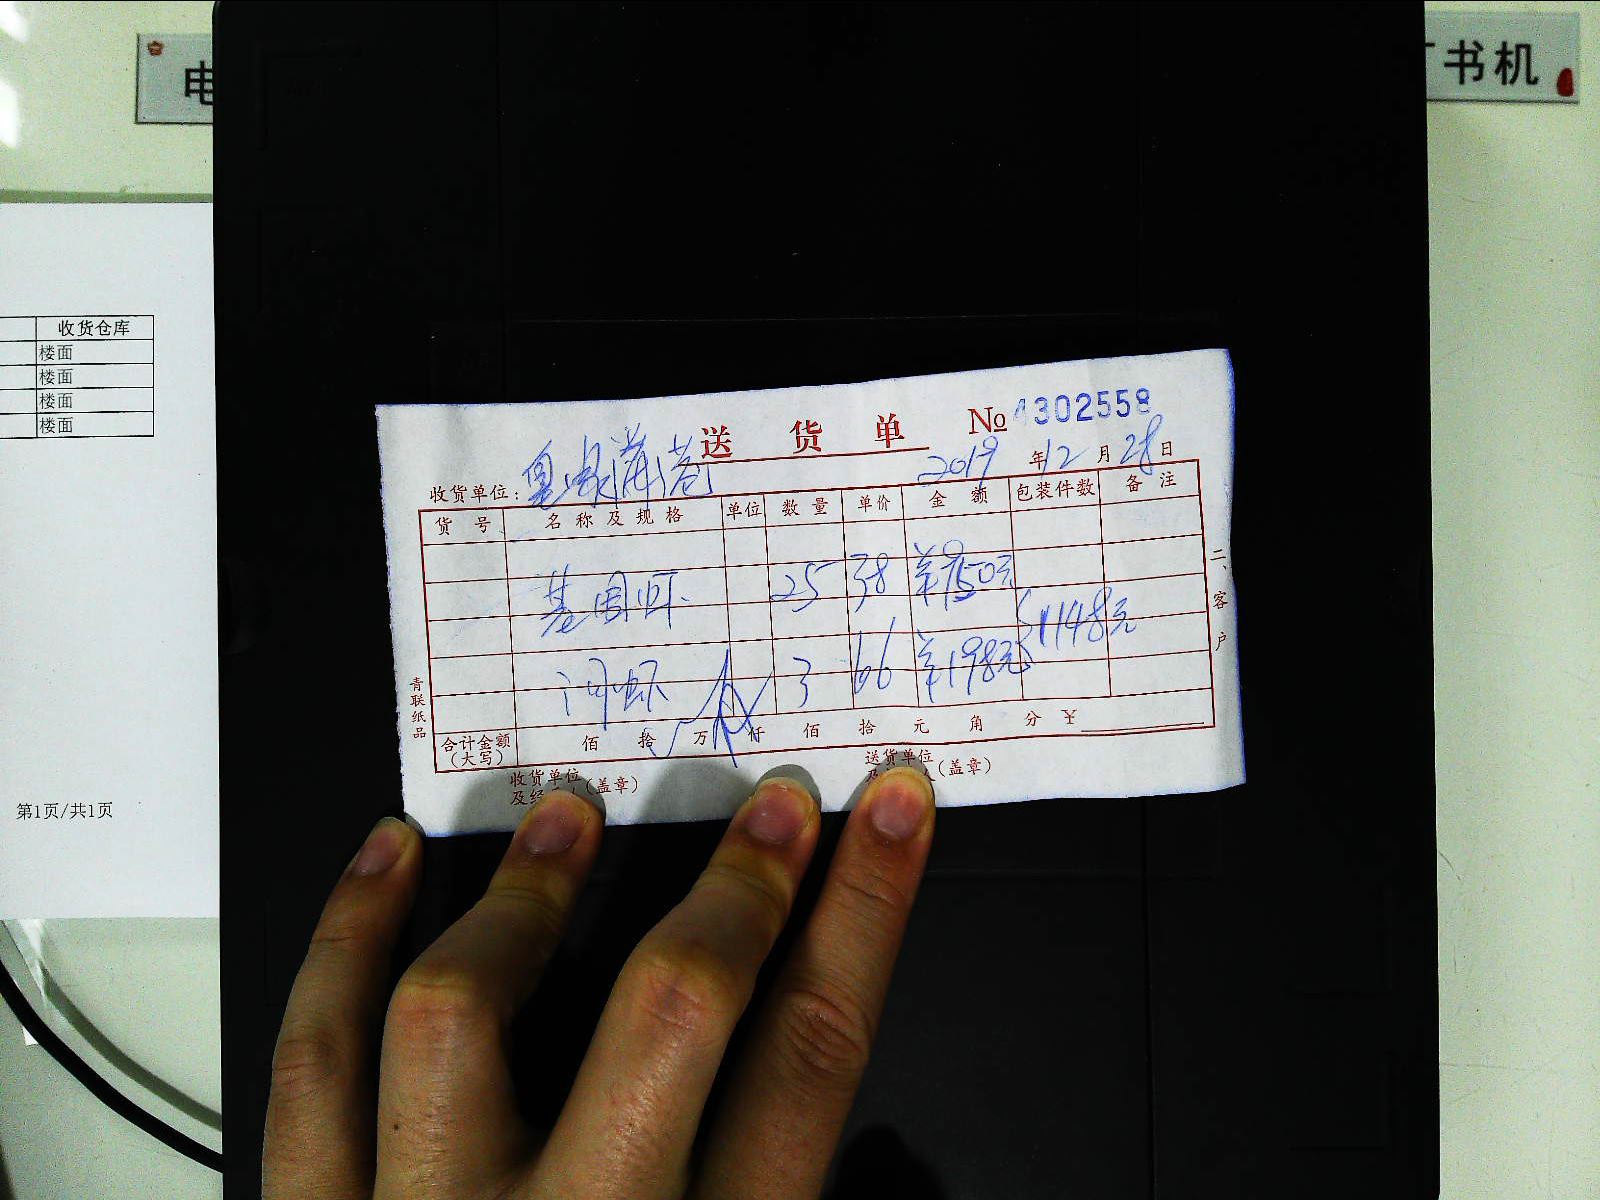 电
订书机
收货仓库
楼面
楼面
楼面
楼面
第1页/共1页
送货单 № 4302558
2019年12月28日
收货单位:
货号 名称及规格 单位 数量 单价 金额 包装件数 备注
基围虾 25 38 ¥950元
河虾 3 66 ¥198元 1148元
合计金额(大写) 佰 拾 万 仟 佰 拾 元 角 分 ¥
收货单位 送货单位
及经 人(盖章) 人(盖章)
青联纸品
二、客户